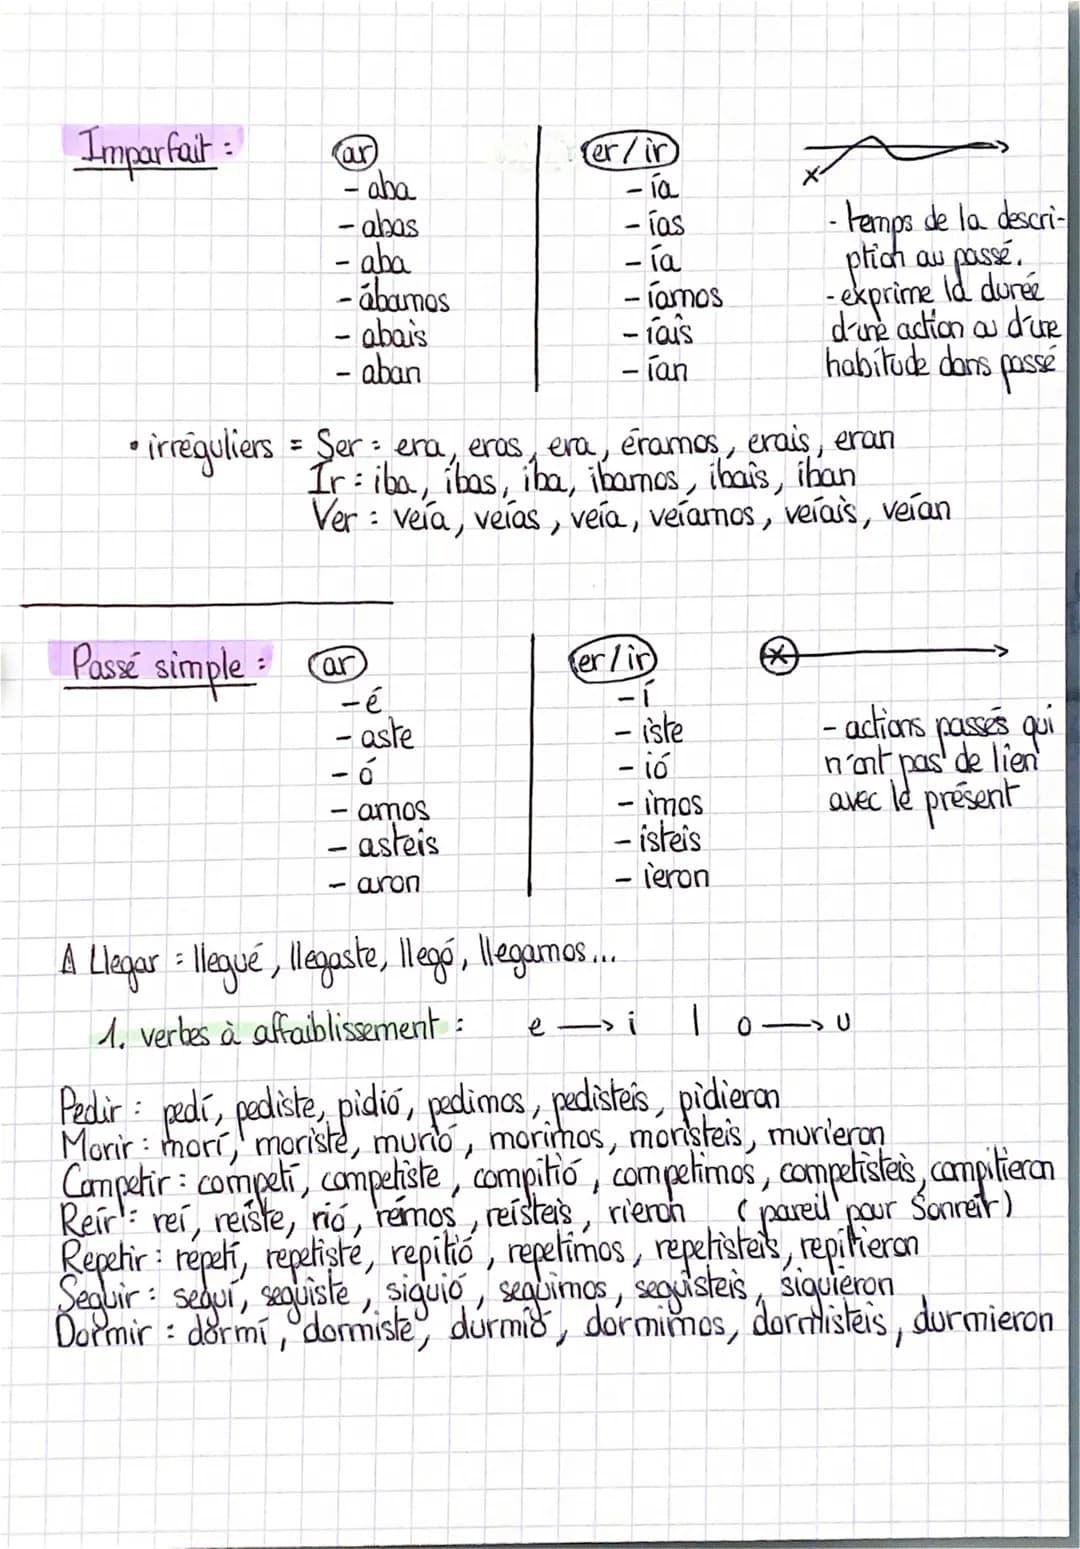 Imparfait :
ar
- aba
- abas
- aba
- ábamos
- abais
- aban
er / ir
- ía
- ías
- ía
- íamos
- íais
- ían
x
- temps de la descri-
ption au passé.
- exprime la durée
d'une action ou d'une
habitude dans passé
• irréguliers = Ser : era, eras, era, éramos, erais, eran
Ir : iba, ibas, iba, ibamos, ibais, iban
Ver : veía, veías, veía, veíamos, veíais, veían
Passé simple :
ar
- é
- aste
- ó
- amos
- asteis
- aron
er / ir
- í
- iste
- ió
- imos
- isteis
- ieron
x
- actions passés qui
n'ont pas de lien
avec le présent
Δ Llegar : llegué, llegaste, llegó, llegamos...
1. verbes à affaiblissement : e → i | o → u
Pedir : pedí, pediste, pidió, pedimos, pedisteis, pidieron
Morir : morí, moriste, murió, morimos, moristeis, murieron
Competir : competí, competiste, compitió, competimos, competisteis, compitieron
Reír : reí, reíste, rió, rémos, reísteis, rieron (pareil pour Sonreír)
Repetir : repetí, repetiste, repitió, repetimos, repetisteis, repitieron
Seguir : seguí, seguiste, siguió, seguimos, seguisteis, siguieron
Dormir : dormí, dormiste, durmió, dormimos, dormisteis, durmieron